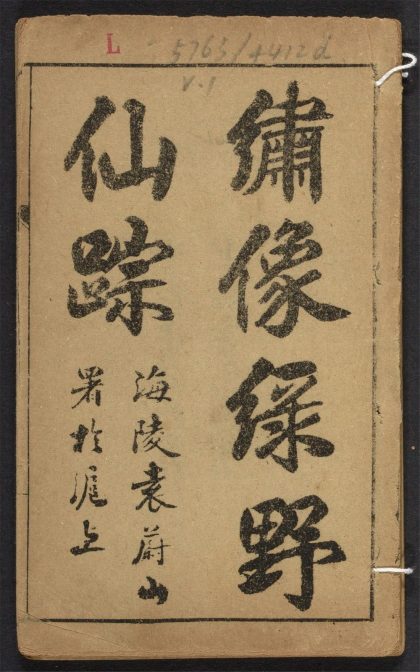 L 5765/4412d
v.1
繡像緑野
仙踪
海陵袁蔚山
署於滬上